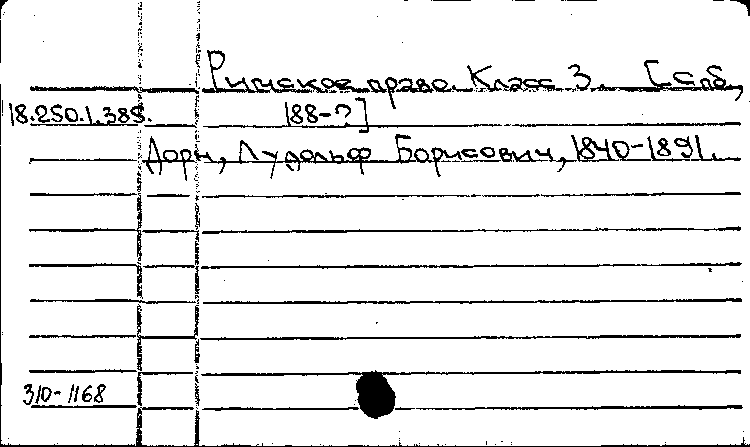 Римское право. Класс 3. [Спб,
18.250.1.385. 188-?]
Дорн, Лудольф Борисович, 1840-1891.
310-1168